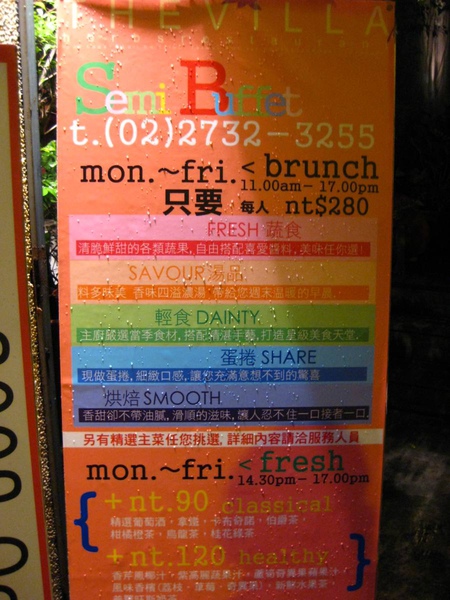 THE VILLA
Semi Buffet
t.(02)2732-3255
mon.~fri.< brunch
11.00am- 17.00pm
只要 每人 nt$280
FRESH 蔬食
清脆鮮甜的各類蔬果,自由搭配喜愛醬料,美味任你選!
SAVOUR 湯品
料多味美 香味四溢濃湯 帶給您週末溫暖的早晨
輕食 DAINTY
主廚嚴選當季食材,搭配精湛手藝,打造星級美食天堂.
蛋捲 SHARE
現做蛋捲,細緻口感,讓您充滿意想不到的驚喜
烘焙 SMOOTH
香甜卻不帶油膩,滑順的滋味,讓人忍不住一口接者一口.
另有精選主菜任您挑選,詳細內容請洽服務人員
mon.~fri.< fresh
14.30pm- 17.00pm
+nt.90 classical
精選葡萄酒,拿鐵,卡布奇諾,伯爵茶
柑橘橙茶,烏龍茶,桂花綠茶
+nt.120 healthy
香芹鳳椰汁,紫高麗蔬果汁,蘆筍奇異果蘋果汁